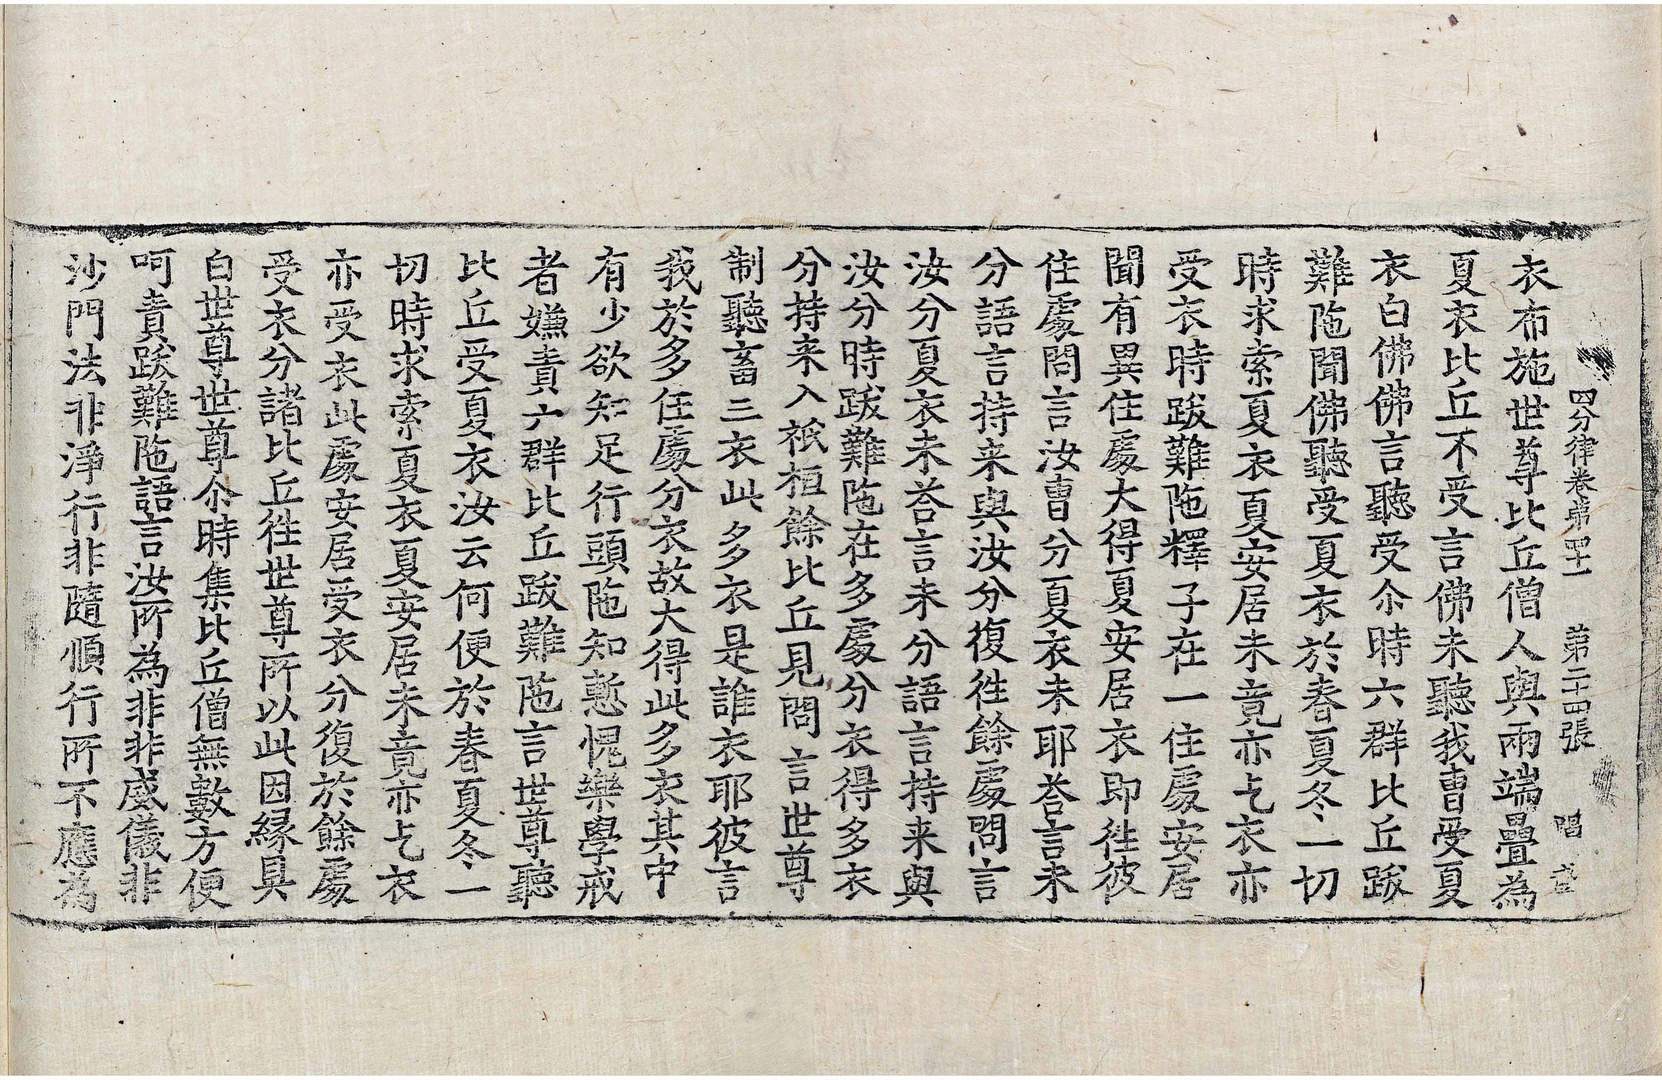 四分律卷第四十一 第二十四張 唱
衣布施世尊比丘僧人與兩端疊為
夏衣比丘不受言佛未聽我曹受夏
衣白佛佛言聽受尒時六群比丘跋
難陁聞佛聽受夏衣於春夏冬一切
時求索夏衣夏安居未竟亦乞衣亦
受衣時跋難陁釋子在一住處安居
聞有異住處大得夏安居衣即往彼
住處問言汝曹分夏衣未耶荅言未
分語言持来與汝分復往餘處問言
汝分夏衣未荅言未分語言持来與
汝分時跋難陁在多處分衣得多衣
分持来入祇桓餘比丘見問言世尊
制聽畜三衣此多衣是誰衣耶彼言
我於多住處分衣故大得此多衣其中
有少欲知足行頭陁知慙愧樂學戒
者嫌責六群比丘跋難陁言世尊聽
比丘受夏衣汝云何便於春夏冬一
切時求索夏衣夏安居未竟亦乞衣
亦受衣此處安居受衣分復於餘處
受衣分諸比丘往世尊所以此因緣具
白世尊世尊尒時集比丘僧無數方便
呵責跋難陁語言汝所為非非威儀非
沙門法非淨行非隨順行所不應為